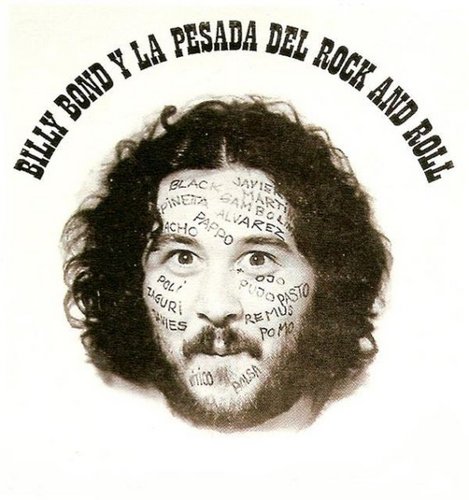 BILLY BOND Y LA PESADA DEL ROCK AND ROLL
BLACK JAVIER
MARTI
PINETTA GAMBOLIN
ALVAREZ
PAPPO
ACHO
POLI
OJO
PUJO PASTO
REMUS
POMO